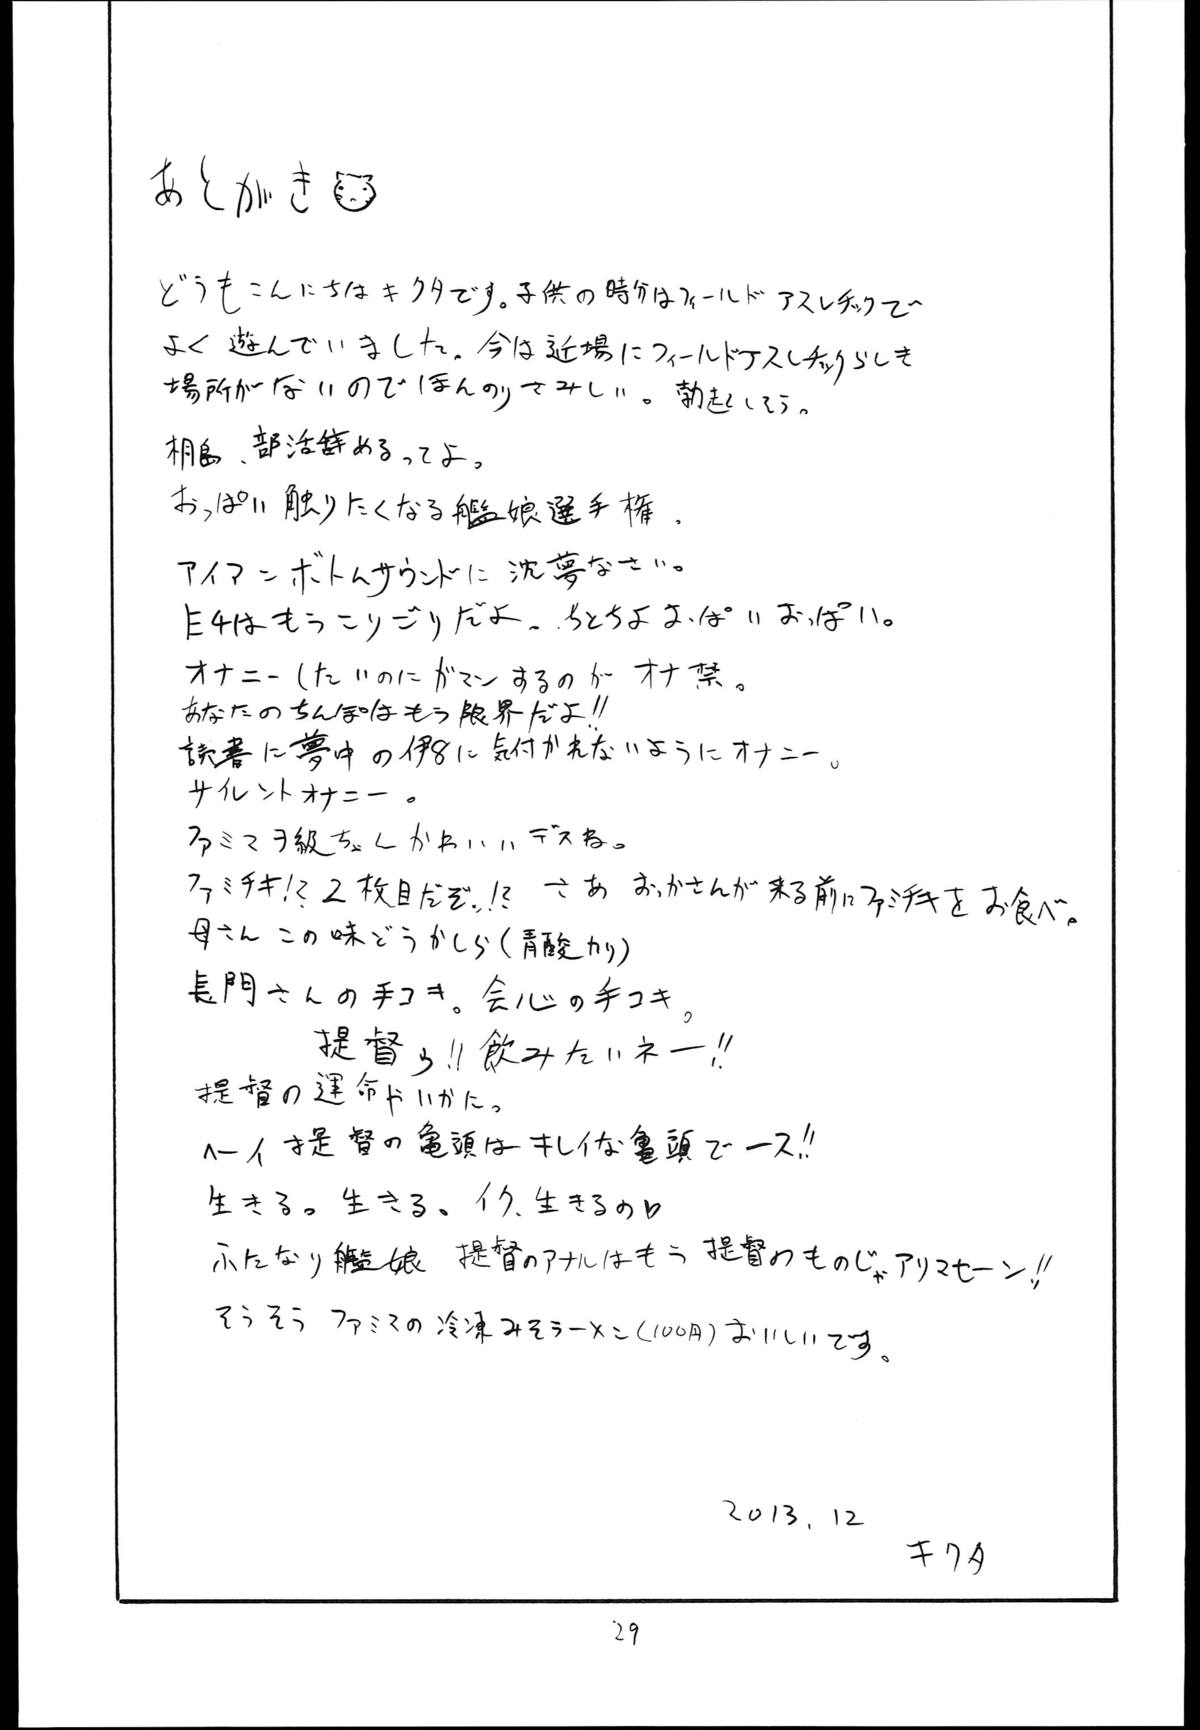 あとがき
どうもこんにちはキクタです。子供の時分はフィールドアスレチックで
よく遊んでいました。今は近場にフィールドアスレチックらしき
場所がないのでほんのりさみしい。勃起しそう。
桐島、部活辞めるってよ。
おっぱい触りたくなる艦娘選手権。
アイアンボトムサウンドに沈夢なさい。
E4はもうこりごりだよ。ちとちよおっぱいおっぱい。
オナニーしたいのにガマンするのがオナ禁。
あなたのちんぽはもう限界だよ!!
読書に夢中の伊8に気付かれないようにオナニー。
サイレントオナニー。
ファミマヲ級ちゃんかわいいデスね。
ファミチキ!?2枚目だぞッ!? さあ おっかさんが来る前にファミチキをお食べ。
母さんこの味どうかしら(青酸カリ)
長門さんの手コキ。会心の手コキ。
提督ゥ!!飲みたいネー!!
提督の運命やいかに。
ヘーイ提督の亀頭はキレイな亀頭でース!!
生きる。生きる。イク、生きるの♡
ふたなり艦娘 提督のアナルはもう提督のものじゃアリマセーン!!
そうそう ファミマの冷凍みそラーメン(100円)おいしいです。
2013.12
キクタ
29